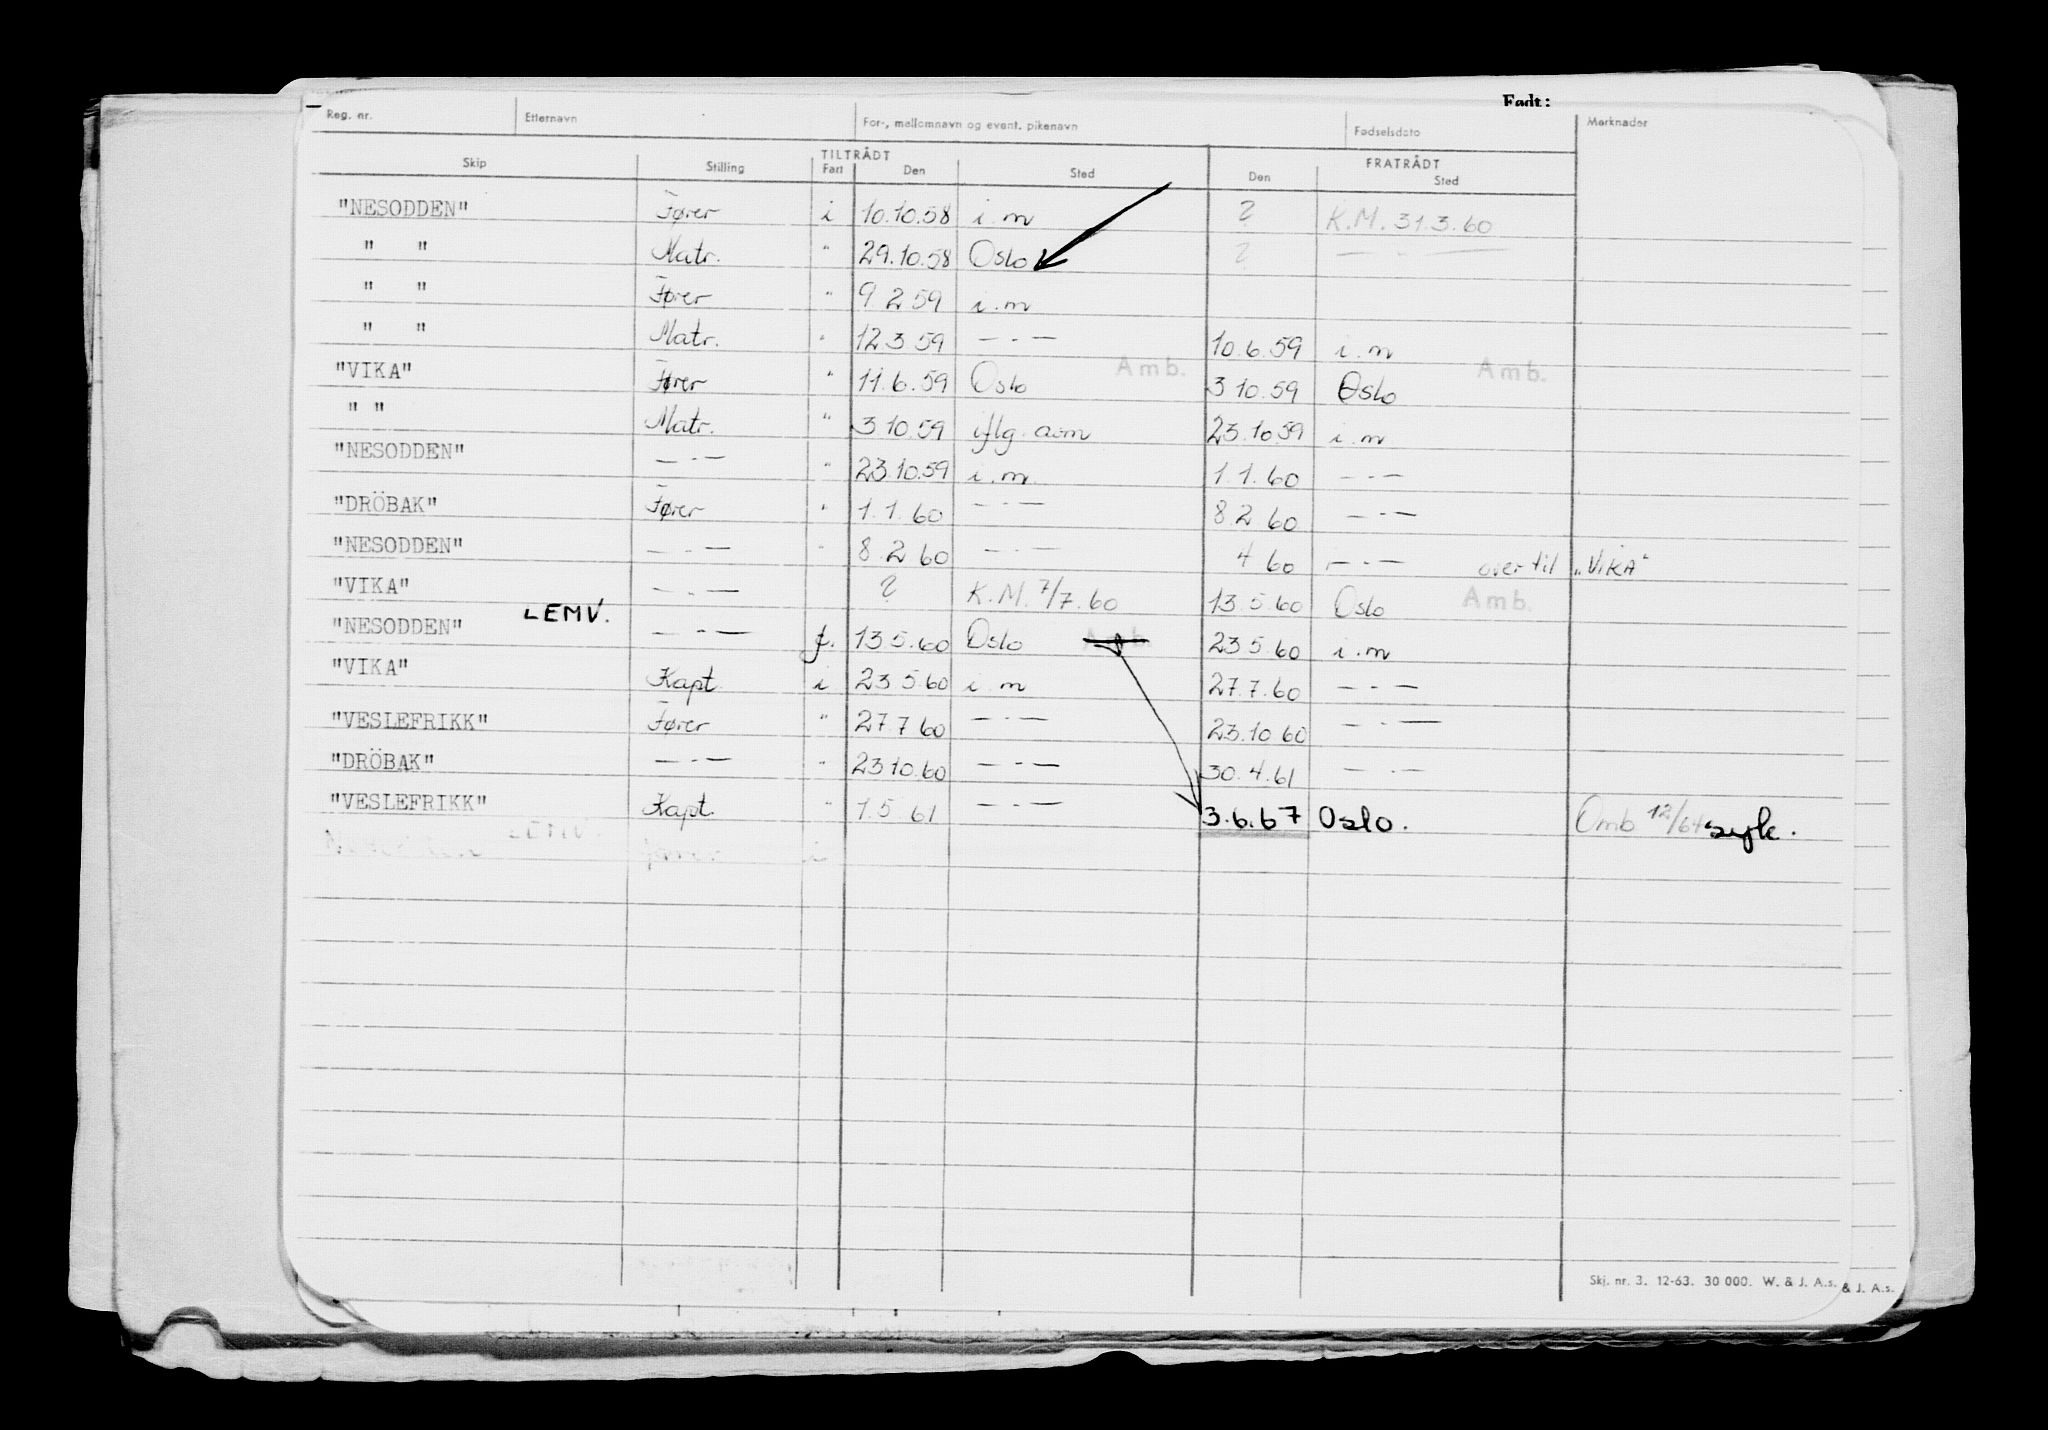 Født:
Reg. nr. Etternavn For-, mellomnavn og event. pikenavn Fødselsdato Merknader
TILTRÅDT FRATRÅDT
Skip Stilling Fart Den Sted Den Sted
"NESODDEN" Fører i 10.10.58 i.m ? K.M. 31.3.60
" " Matr. " 29.10.58 Oslo ? — " —
" " Fører " 9 2 59 i.m
" " Matr. " 12 3 59 — " — 10.6.59 i.m
"VIKA" Fører " 11.6.59 Oslo Amb. 3 10.59 Oslo Amb.
" " Matr. " 3 10 59 iflg. 23.10.59 i.m
"NESODDEN" — " — " 23.10.59 i.m. 1.1.60 — " —
"DRÖBAK" Fører " 1.1.60 — " — 8.2 60 — " —
"NESODDEN" — " — " 8.2 60 — " — 4 60 — " — over til "VIKA"
"VIKA" — " — ? K.M. 7/7.60 13.5.60 Oslo Amb.
"NESODDEN" LEMV. — " — f. 13 5.60 Oslo Amb. 23 5.60 i.m
"VIKA" Kapt. i 23 5.60 i.m 27.7.60 — " —
"VESLEFRIKK" Fører " 27 7 60 — " — 23.10 60 — " —
"DRÖBAK" — " — " 23 10.60 — " — 30.4.61 — " —
"VESLEFRIKK" Kapt. " 1.5 61 — " — 3.6.67 Oslo. Omb 12/64 syk.
LEMV. fører i
Skj. nr. 3. 12-63. 30 000. W. & J. A.s.
& J. A.s.